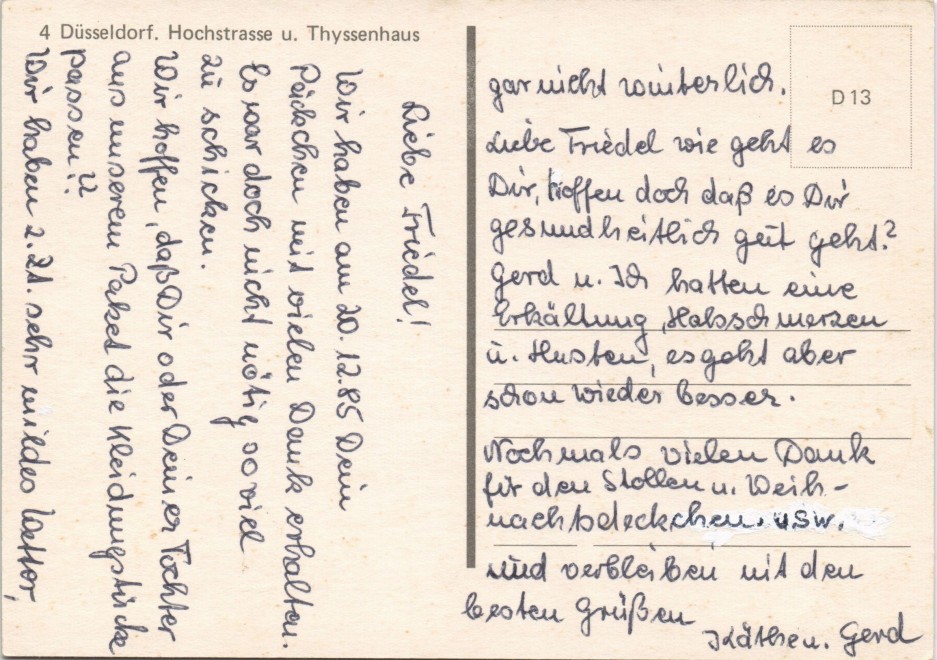 4 Düsseldorf. Hochstrasse u. Thyssenhaus
D 13
Liebe Friedel!
Wir haben am 20.12.85 Dein
Päckchen mit vielen Dank erhalten.
Es war doch nicht nötig so viel
zu schicken.
Wir hoffen, daß Dir oder Deiner Tochter
aus unserem Paket die Kleidungstücke
passen??
Wir haben z. Zt. sehr mildes Wetter,
gar nicht winterlich.
Liebe Friedel wie geht es
Dir, hoffen doch daß es Dir
gesundheitlich gut geht?
Gerd u. Ich hatten eine
Erkältung, Halsschmerzen
u. Husten, es geht aber
schon wieder besser.
Nochmals vielen Dank
für den Stollen u. Weih-
nachtsdeckchen. usw.
und verbleiben mit den
besten Grüßen
Käthe u. Gerd